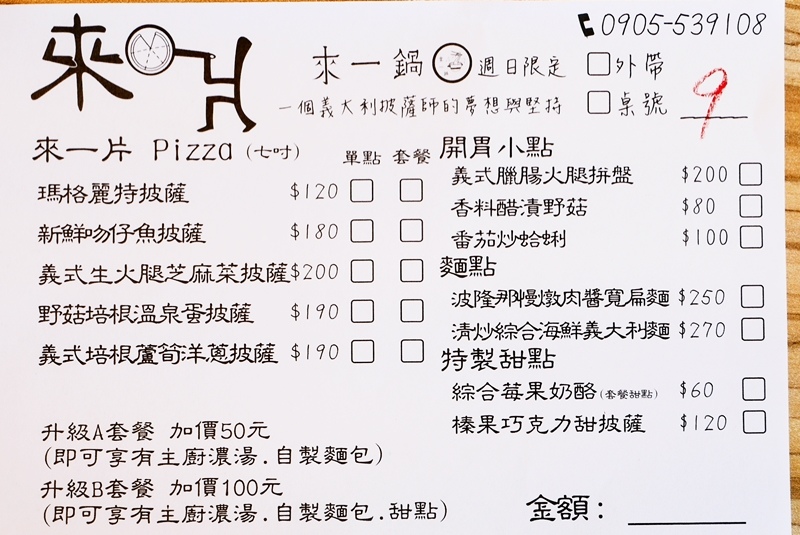 來一片
0905-539108
來一鍋 週日限定 外帶
一個義大利披薩師的夢想與堅持 桌號 9
來一片 Pizza (七吋) 單點 套餐
瑪格麗特披薩 $120
新鮮吻仔魚披薩 $180
義式生火腿芝麻菜披薩 $200
野菇培根溫泉蛋披薩 $190
義式培根蘆筍洋蔥披薩 $190
升級A套餐 加價50元
(即可享有主廚濃湯.自製麵包)
升級B套餐 加價100元
(即可享有主廚濃湯.自製麵包.甜點)
開胃小點
義式臘腸火腿拼盤 $200
香料醋漬野菇 $80
番茄炒蛤蜊 $100
麵點
波隆那慢燉肉醬寬扁麵 $250
清炒綜合海鮮義大利麵 $270
特製甜點
綜合莓果奶酪(套餐甜點) $60
榛果巧克力甜披薩 $120
金額: